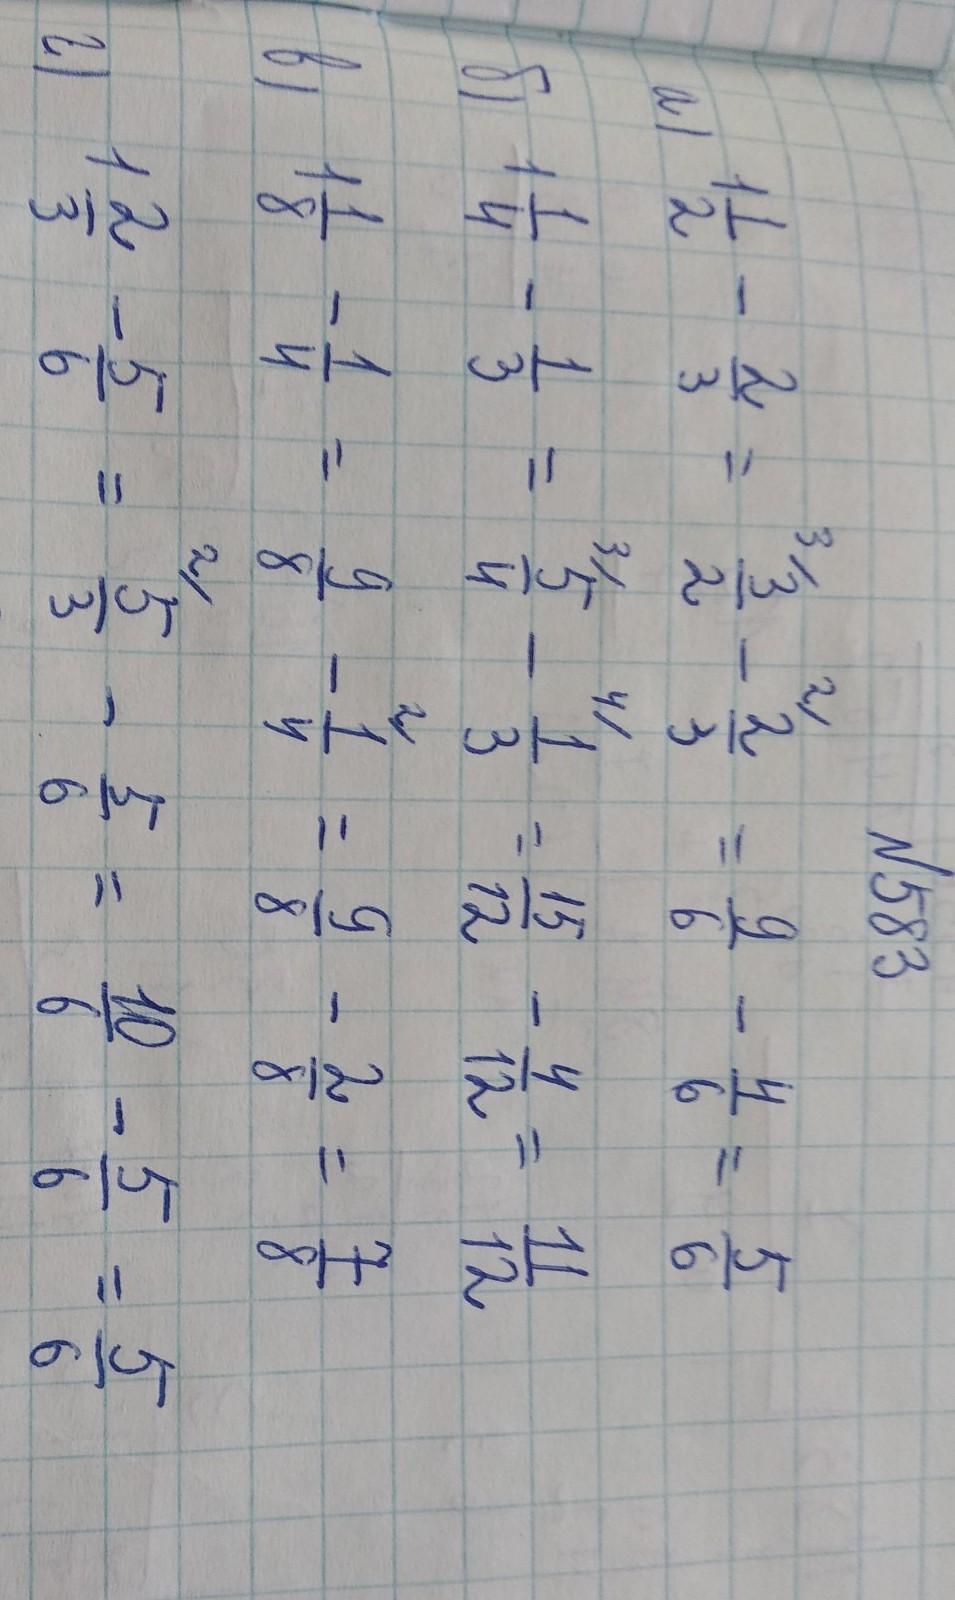 N583
а) 1 1/2 - 2/3 = 3/2 ³⁾ - 2/3 ²⁾ = 9/6 - 4/6 = 5/6
б) 1 1/4 - 1/3 = 5/4 ³⁾ - 1/3 ⁴⁾ = 15/12 - 4/12 = 11/12
в) 1 1/8 - 1/4 = 9/8 - 1/4 ²⁾ = 9/8 - 2/8 = 7/8
г) 1 2/3 - 5/6 = 5/3 ²⁾ - 5/6 = 10/6 - 5/6 = 5/6